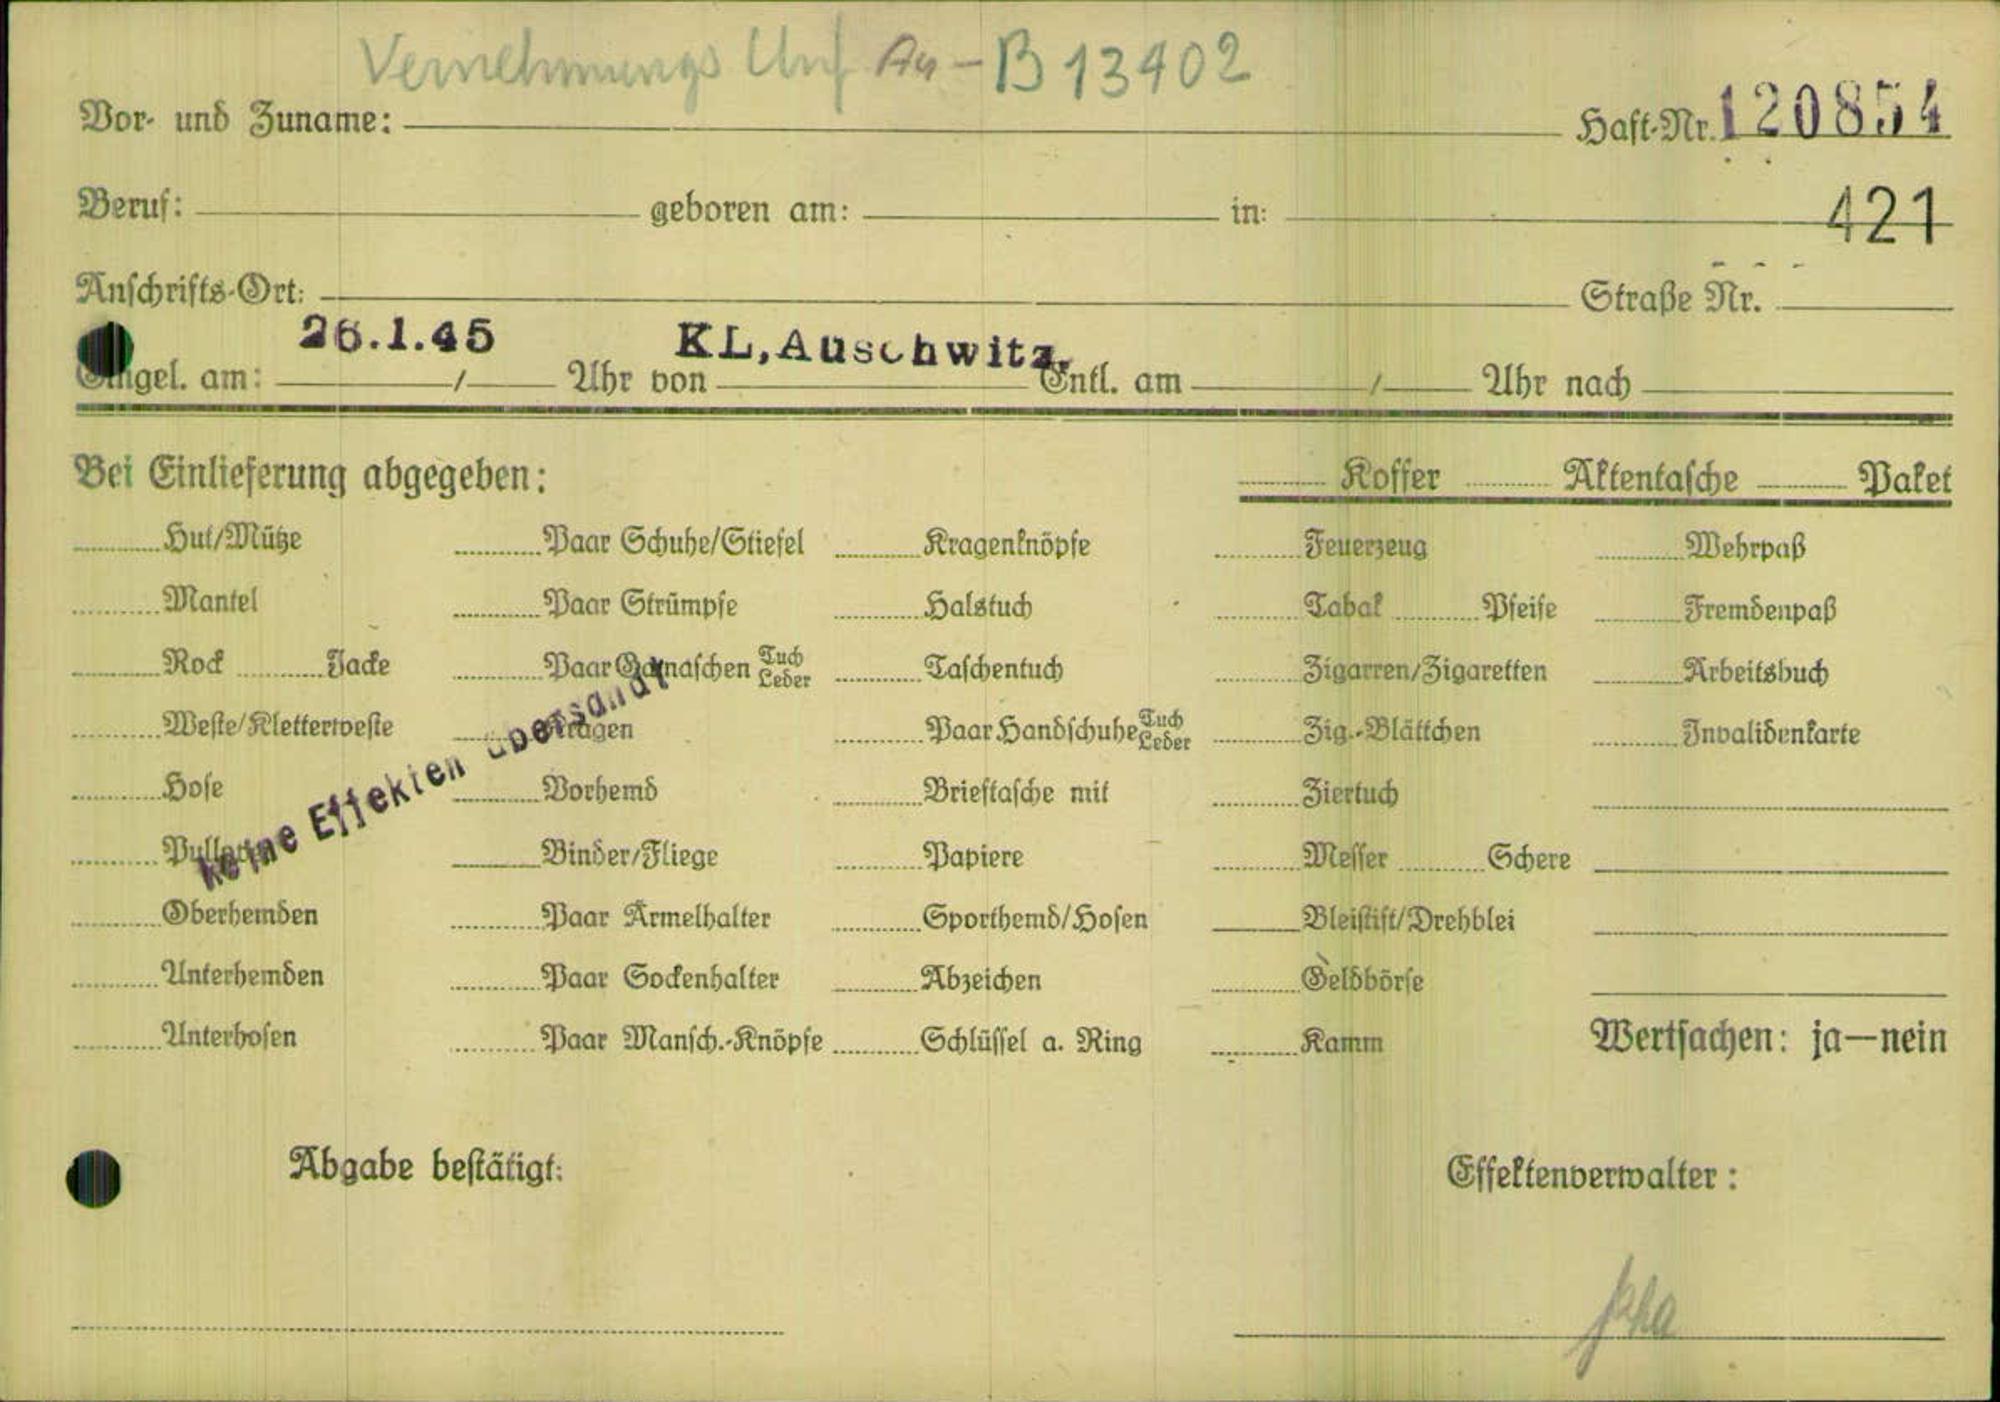 Vernehmungs Unf Au - B 13402
Vor- und Zuname: Haft-Nr. 120854
Beruf: geboren am: in: 421
Anschrifts-Ort: Straße Nr.
26.1.45 KL, Auschwitz,
Eingel. am: / Uhr von Entl. am / Uhr nach
Bei Einlieferung abgegeben: Koffer Aktentasche Paket
Hut/Mütze Paar Schuhe/Stiefel Kragenknöpfe Feuerzeug Wehrpaß
Mantel Paar Strümpfe Halstuch Tabak Pfeife Fremdenpaß
Rock Jacke Paar Gamaschen Tuch Leder Taschentuch Zigarren/Zigaretten Arbeitsbuch
Weste/Kletterweste Kragen Paar Handschuhe Tuch Leder Zig.-Blättchen Invalidenkarte
Hose Vorhemd Brieftasche mit Ziertuch
Pullover Binder/Fliege Papiere Messer Schere
keine Effekten übersandt
Oberhemden Paar Ärmelhalter Sporthemd/Hosen Bleistift/Drehblei
Unterhemden Paar Sockenhalter Abzeichen Geldbörse
Unterhosen Paar Mansch.-Knöpfe Schlüssel a. Ring Kamm Wertsachen: ja—nein
Abgabe bestätigt: Effektenverwalter: